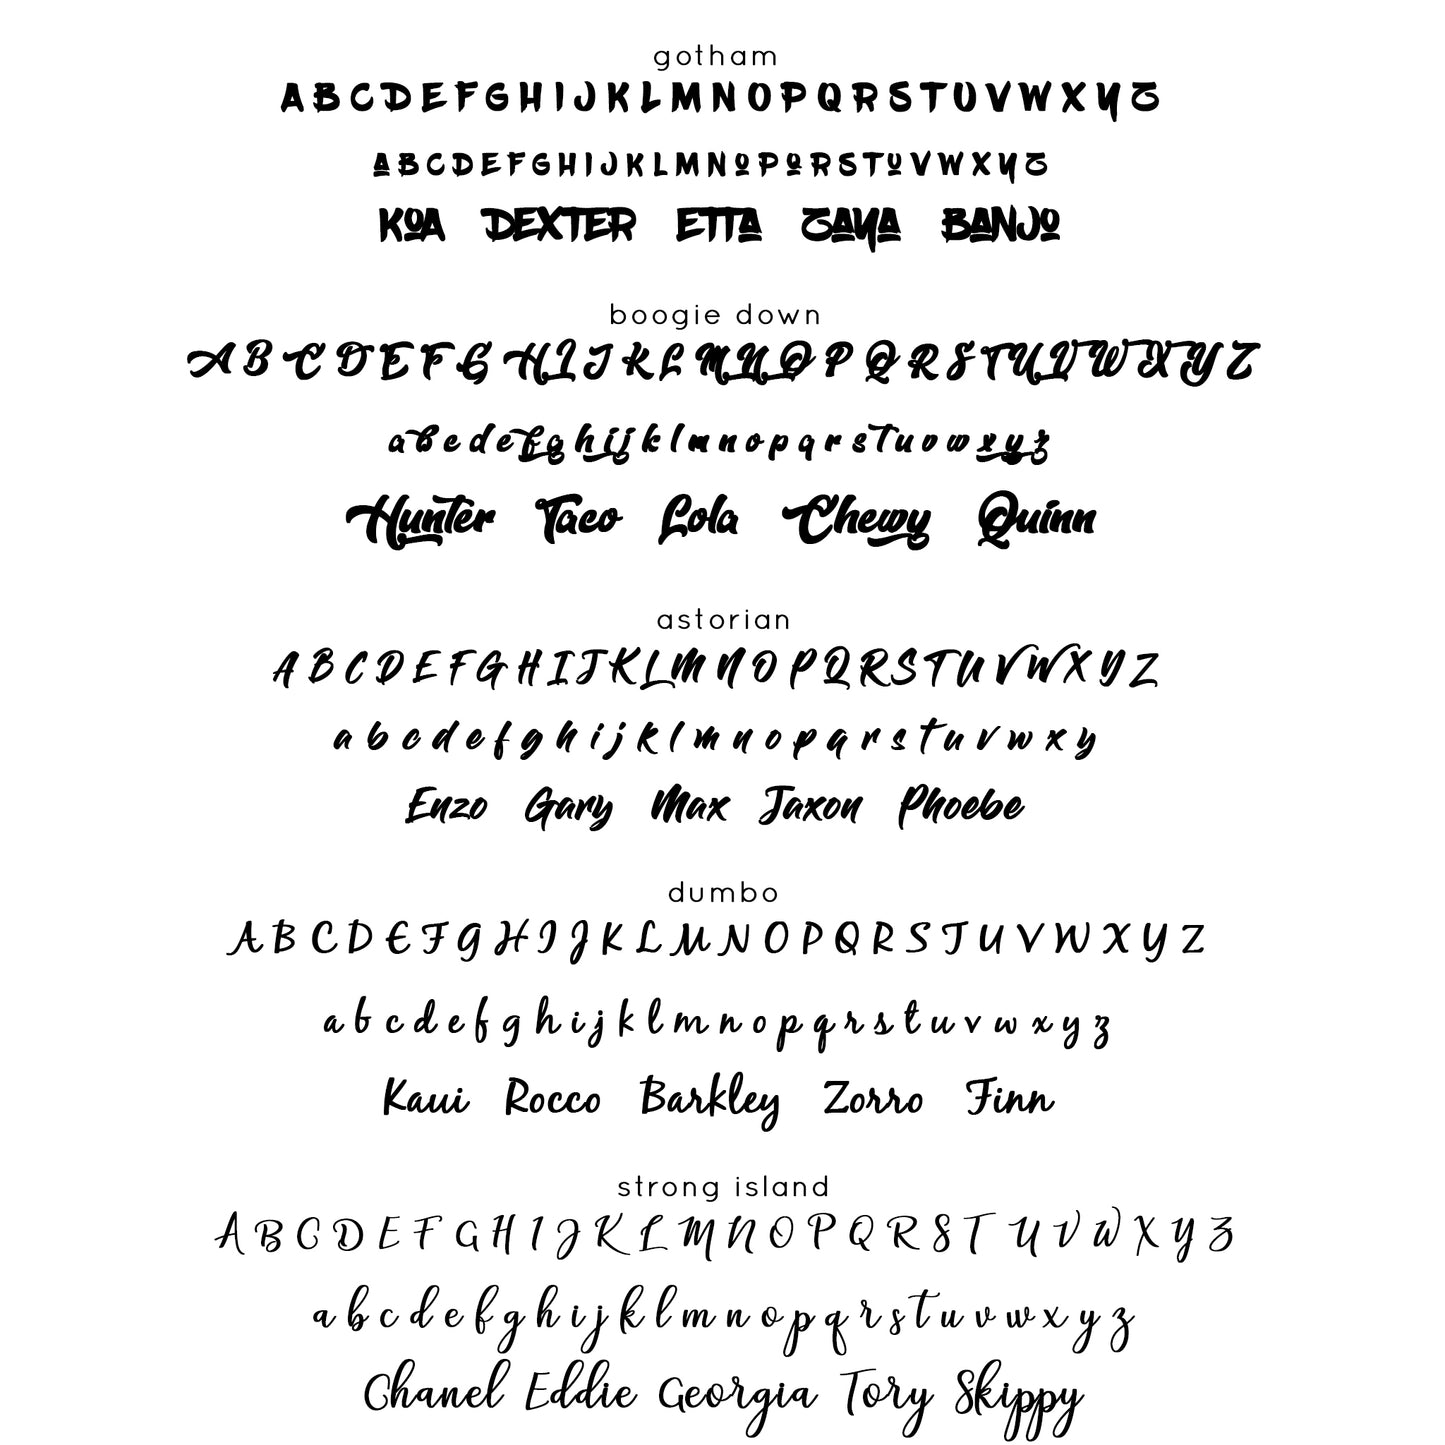 gotham
A B C D E F G H I J K L M N O P Q R S T U V W X Y Z
A B C D E F G H I J K L M N O P Q R S T U V W X Y Z
KOA DEXTER ETTA ZAYA BANJO
boogie down
A B C D E F G H I J K L M N O P Q R S T U V W X Y Z
a b c d e f g h i j k l m n o p q r s t u v w x y z
Hunter Taco Lola Chewy Quinn
astorian
A B C D E F G H I J K L M N O P Q R S T U V W X Y Z
a b c d e f g h i j k l m n o p q r s t u v w x y
Enzo Gary Max Jaxon Phoebe
dumbo
A B C D E F G H I J K L M N O P Q R S T U V W X Y Z
a b c d e f g h i j k l m n o p q r s t u v w x y z
Kaui Rocco Barkley Zorro Finn
strong island
A B C D E F G H I J K L M N O P Q R S T U V W X Y Z
a b c d e f g h i j k l m n o p q r s t u v w x y z
Chanel Eddie Georgia Tory Skippy